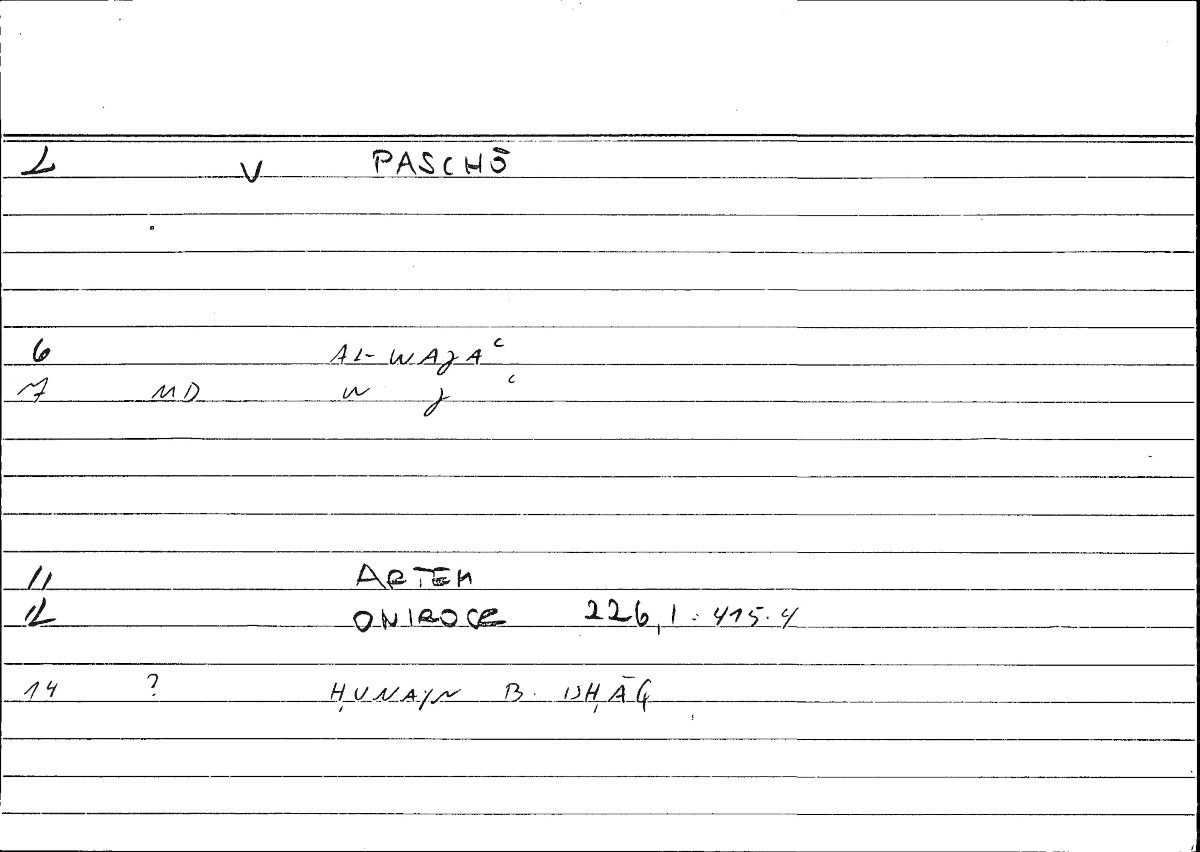 2 V PASCHŌ
6 AL-WAJAʿ
7 MD W J ʿ
11 ARTEM
12 ONIROCR 226,1 : 415.4
14 ? ḤUNAYN B. ISḤĀQ